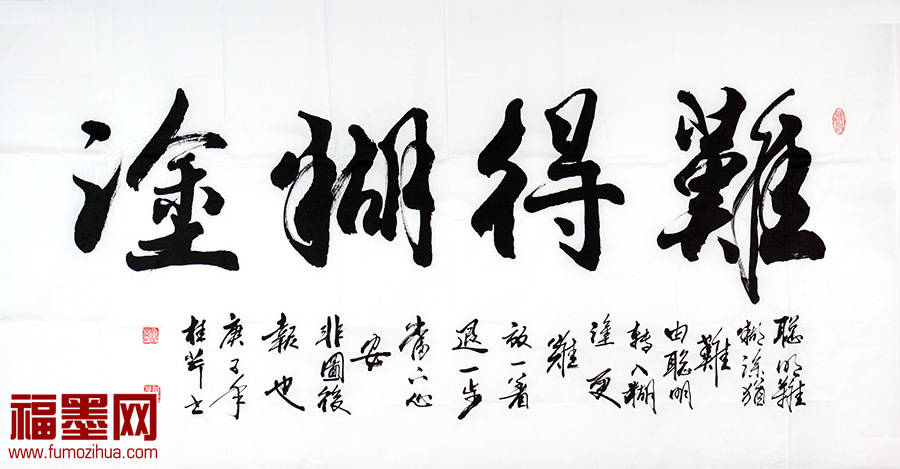 難得糊塗
聪明難
糊涂猶
難
由聪明
轉入糊
塗更
難
放一着
退一步
當下心
安
非圖後
報也
庚子年
桂芹书
福墨网
www.fumozihua.com